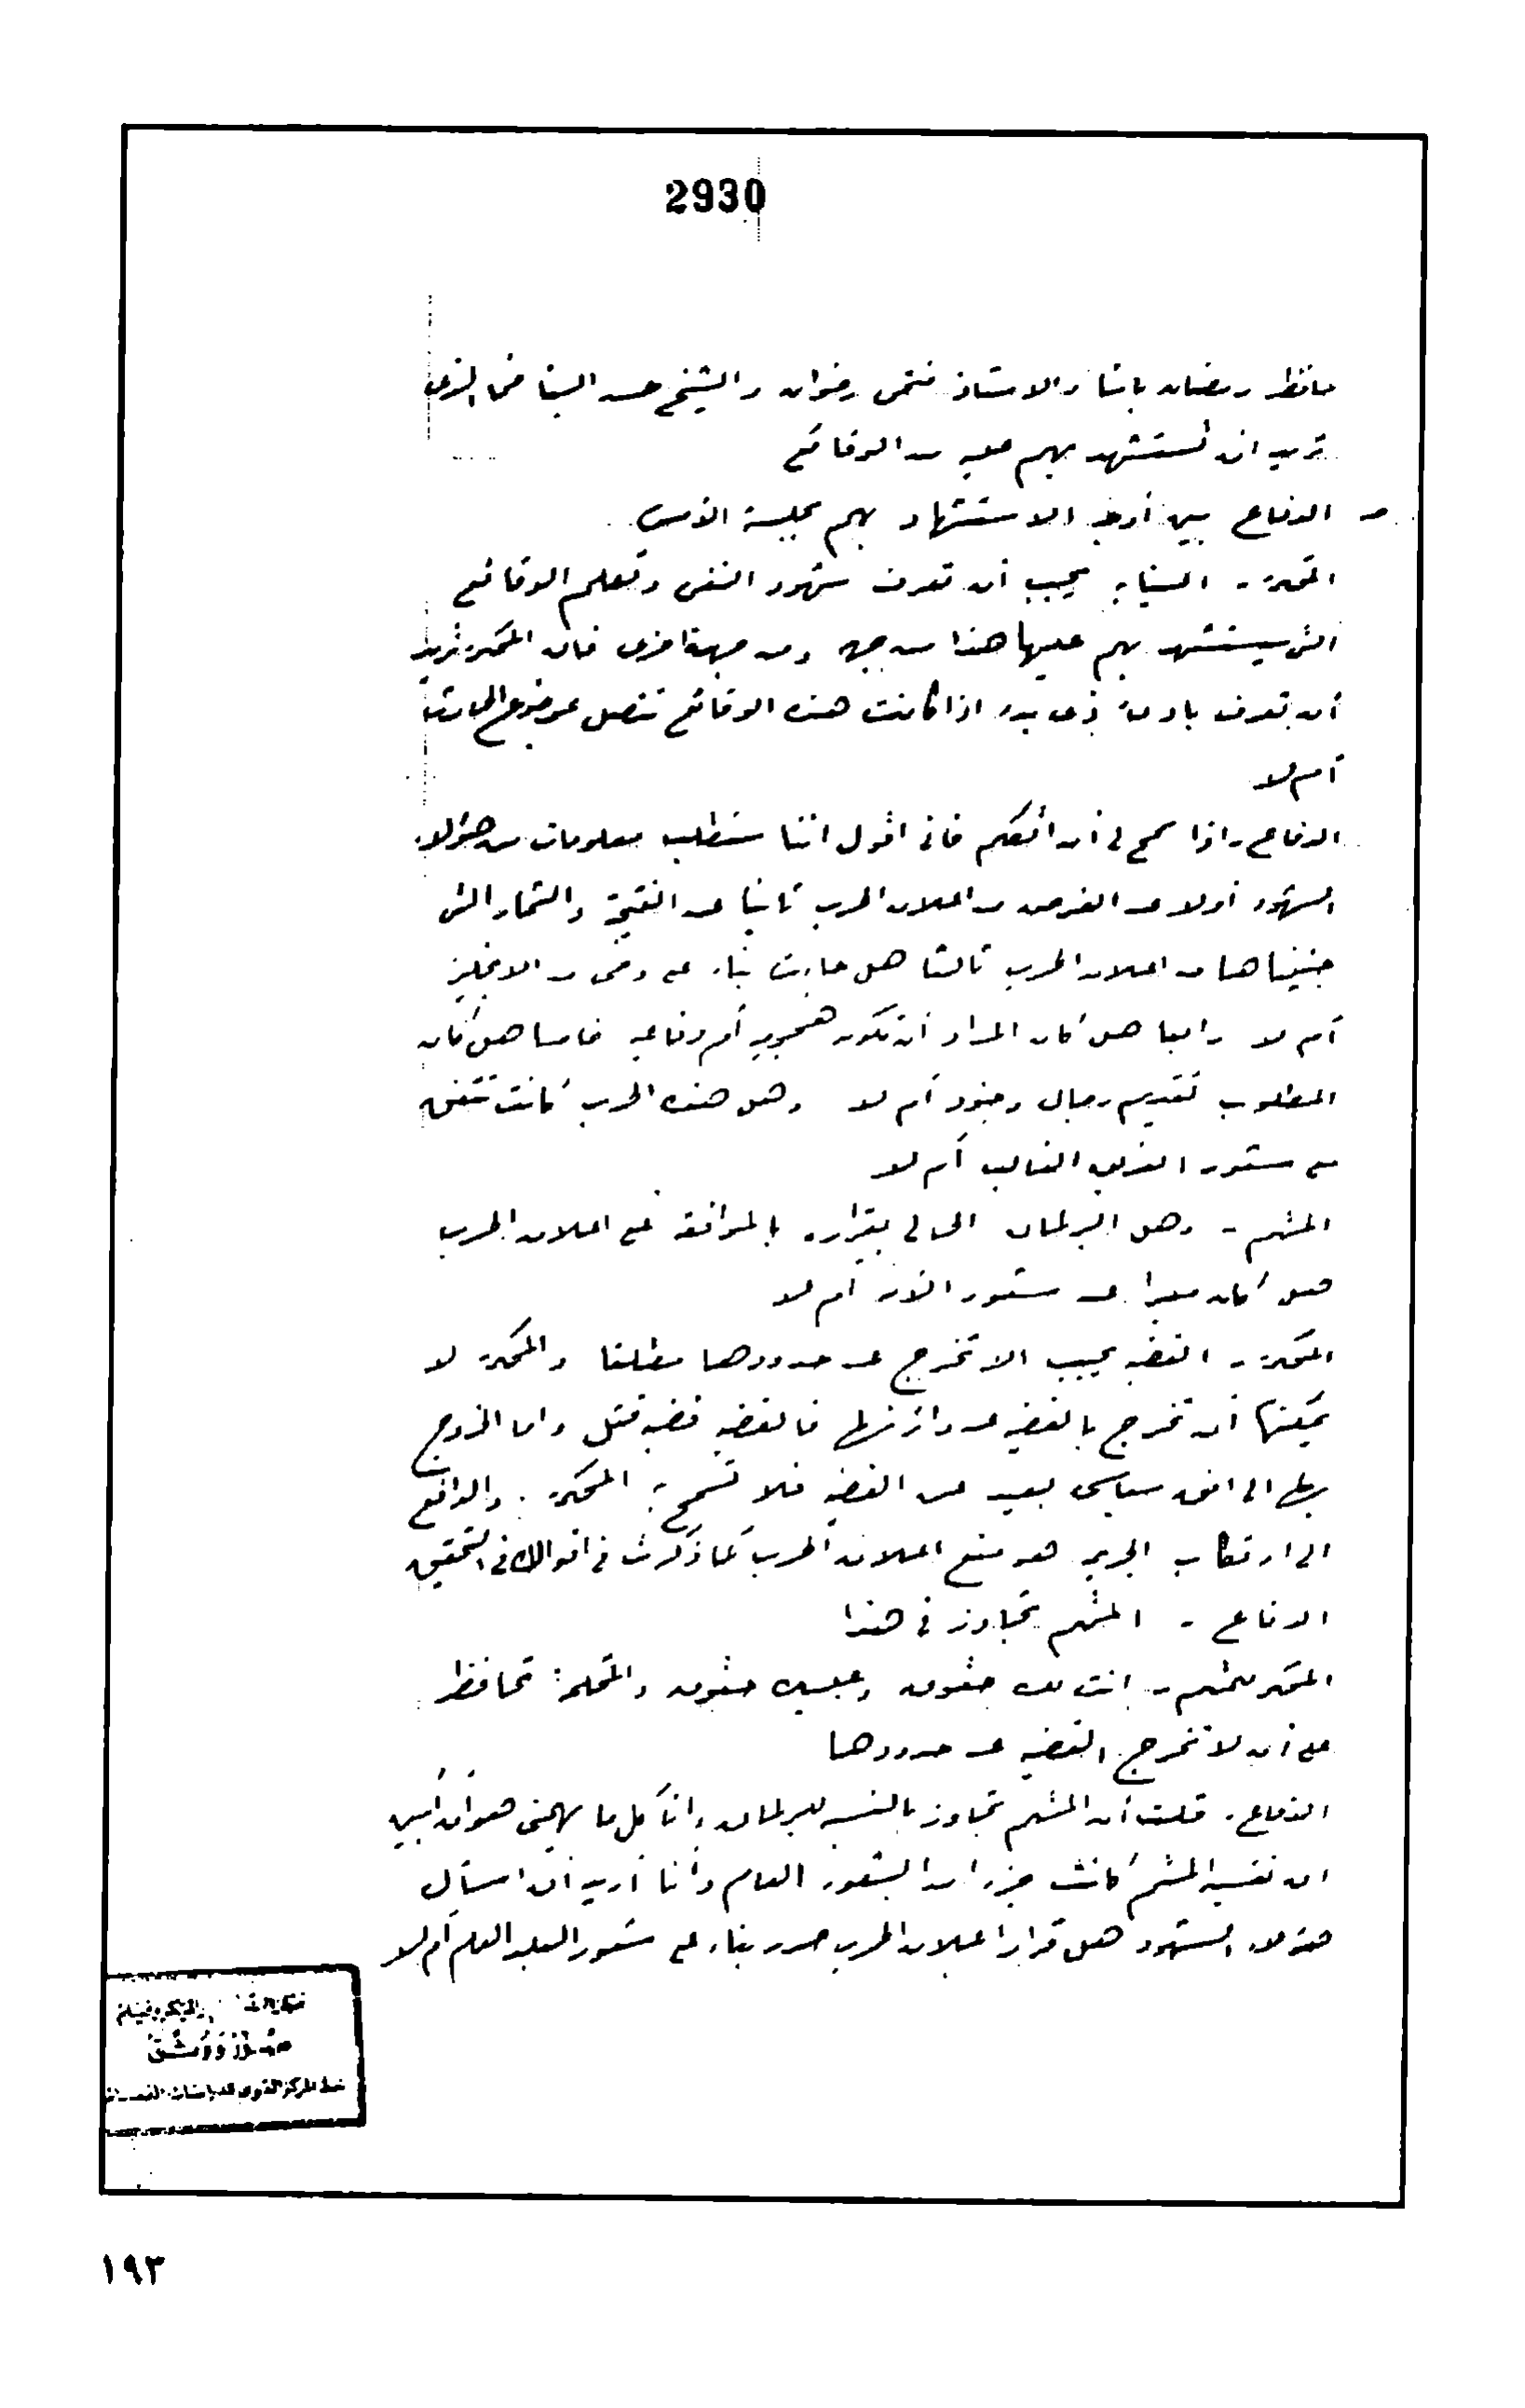 2930
حافظ رمضان باشا والاستاذ فتحى رضوان والشيخ حسن البنا فما الذى
تريد ان تستشهد بهم عليه من الوقائع
الدفاع بين أوجه الاستشهاد بهم بجلسة الأمس
المحكمة - النيابة يجب أن تعرف شهود النفى وتعلم الوقائع
التى سيستشهد بهم عليها هذا من جهة ومن جهة اخرى فان المحكمة تريد
أن تعرف بادئ ذى بدء اذا كانت هذه الوقائع تتصل بموضوع الحادث
أم لا
الدفاع - اذا سمح لى أن أتكلم فانى اقول اننا سنطلب معلومات من هؤلاء
الشهود أولا عن الغرض من اعلان الحرب ثانيا عن النتيجة والثمار التى
جنيناها من اعلان الحرب ثالثا هل جاءت بناء على وحى من الانجليز
أم لا رابعا هل كان المراد أن تكون هجومية أم دفاعية خامسا هل كان
المطلوب تقديم رجال وجنود أم لا وهل هذه الحرب كانت تتفق
مع شعور الفريق الغالب أم لا
المتهم - وهل البرلمان الحالى بقراره بالموافقة على اعلان الحرب
هل كان معبرا عن شعور الأمة أم لا
المحكمة - القضية يجب الا تخرج عن حدودها مطلقا والمحكمة لا
يمكنها أن تخرج بالقضية عن دائرتها فالقضية قضية قتل واما الخروج
بها الى افق سياسى بعيد عن القضية فلا تسمح به المحكمة. والدافع
الى ارتكاب الجريمة هو منع اعلان الحرب كما ذكرت فى اقوالك فى التحقيق
الدفاع - المتهم تجاوز فى هذا
المحكمة للمتهم - انت لك حقوق وعليك حقوق والمحكمة تحافظ
على أن لا تخرج القضية عن حدودها
الدفاع. قلت أن المتهم تجاوز بالنسبة للبرلمان وأنا كل ما يهمنى هو أن أبين
ان نفسية المتهم كانت جزءا من الشعور العام وأنا أريد أن اسأل
هؤلاء الشهود هل قرار اعلان الحرب صدر بناء على شعور البلد العام أم لا
١٩٣